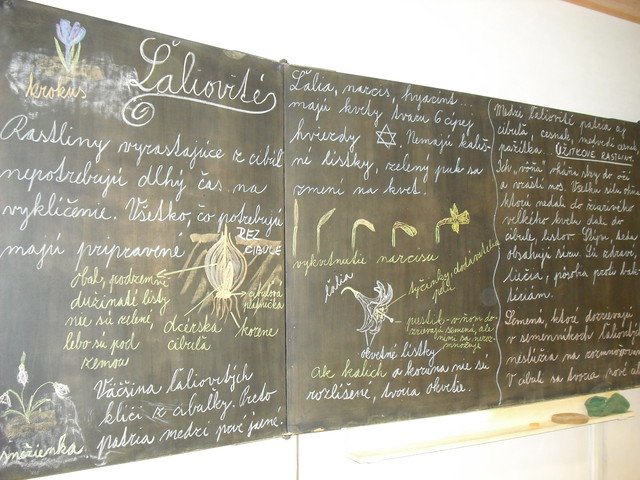 krokus
Ľaliovité
Rastliny vyrastajúce z cibúľ
nepotrebujú dlhý čas na
vyklíčenie. Všetko, čo potrebujú
majú pripravené
REZ
CIBUĽE
Obaly, podzemné
dužinaté listy
nie sú zelené,
lebo sú pod
zemou
dcérska
cibuľa
korene
Väčšina ľaliovitých
klíči z cibuľky. Preto
patria medzi prvé jarné
snežienka
Ľalia, narcis, hyacint...
majú kvety tvaru 6 cípej
hviezdy
Nemajú kališ-
né lístky, zelený puk sa
zmení na kvet.
vykvitnutie narcisu
ľalia
tyčinky, dodávatelia
peľu
piestik - v ňom do-
zrievajú semená, ale
nimi sa neroz-
množuje
okvetné lístky
Ak kalich a koruna nie sú
rozlíšené, tvoria okvetie.
Medzi ľaliovité patria aj
cibuľa, cesnak, medvedí cesnak,
pažítka. ÚŽITKOVÉ RASTLINY
Ich „vôňa" vháňa slzy do očí
a vráští nos. Všetku silu
ktorú nedali do žiarivého
veľkého kvetu dali do
cibule, listov.
obsahujú síru. Sú zdravé,
liečia, pôsobia proti
Semená, ktoré dozrievajú
v semenníkoch ľaliovitých
neslúžia na rozmnožovanie
V cibuli sa tvoria nové